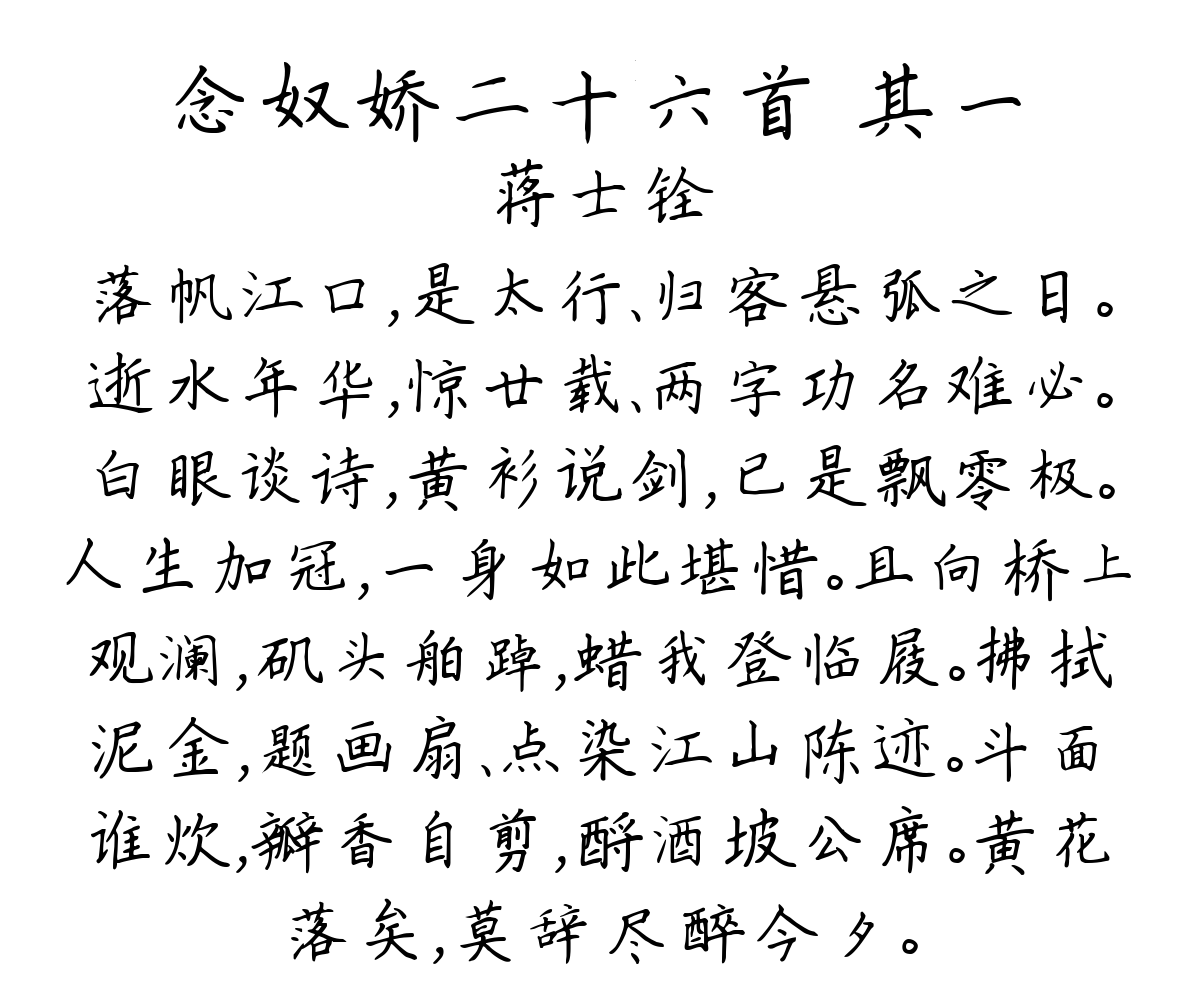 念奴娇二十六首 其一
蒋士铨
落帆江口,是太行、归客悬弧之日。
逝水年华,惊廿载、两字功名难必。
白眼谈诗,黄衫说剑,已是飘零极。
人生加冠,一身如此堪惜。且向桥上
观澜,矶头舶踔,蜡我登临屐。拂拭
泥金,题画扇、点染江山陈迹。斗面
谁炊,瓣香自剪,酹酒坡公席。黄花
落矣,莫辞尽醉今夕。